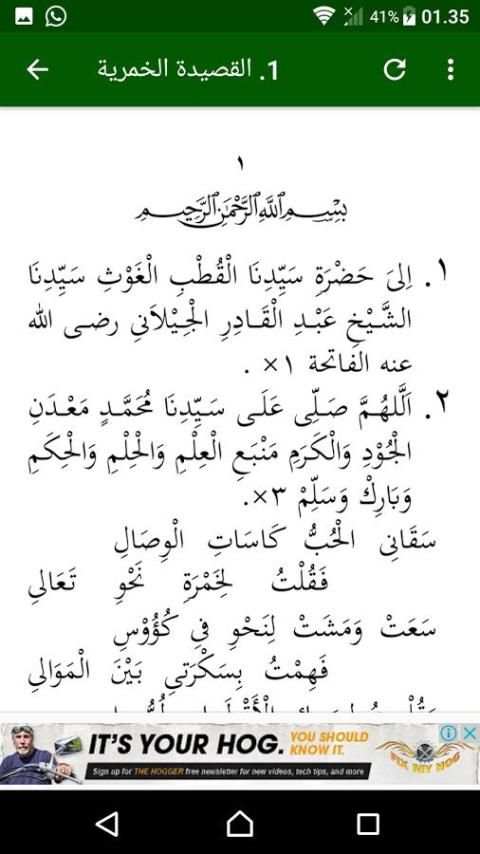 41% 01.35
1. القصيدة الخمرية
١
بِسْمِ اللَّهِ الرَّحْمَٰنِ الرَّحِيمِ
١. اِلىَ حَضْرَةِ سَيِّدِنَا الْقُطْبِ الْغَوْثِ سَيِّدِنَا
الشَّيْخِ عَبْدِ الْقَادِرِ الْجِيْلَانِي رضى الله
عنه الفاتحة ١× .
٢. اَللّٰهُمَّ صَلِّى عَلَى سَيِّدِنَا مُحَمَّدٍ مَعْدَنِ
الْجُوْدِ وَالْكَرَمِ مَنْبَعِ الْعِلْمِ وَالْحِلْمِ وَالْحِكَمِ
وَبَارِكْ وَسَلِّمْ ٣×.
سَقَانِى الْحُبُّ كَاسَاتِ الْوِصَالِ
فَقُلْتُ لِخَمْرَةِ نَحْوِ تَعَالِى
سَعَتْ وَمَشَتْ لِنَحْوِ فِي كُؤُوْسٍ
فَهِمْتُ بِسَكْرَتِي بَيْنَ الْمَوَالِى
IT'S YOUR HOG. YOU SHOULD
KNOW IT.
Sign up for THE HOGGER free newsletter for new videos, tech tips, and more
FIX MY HOG